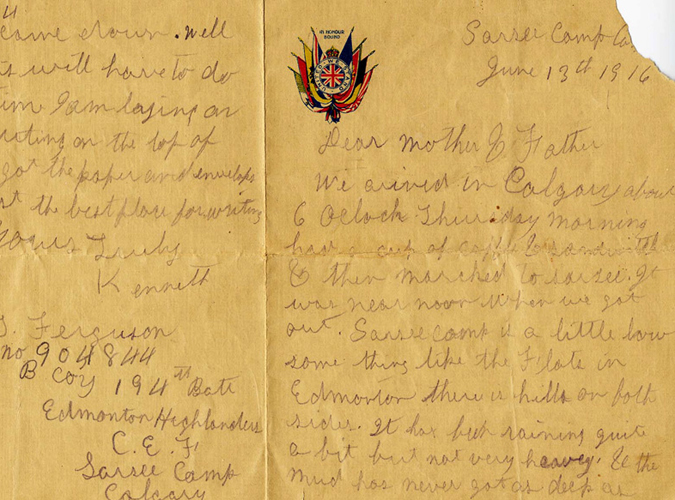 4
came down. Well
is will have to do
time I am laying on
writing on the top of
got the paper and envelope
the best place for writing
Yours Truly
Kenneth
Ferguson
no 904844
B Coy 194th Batt
Edmonton Highlanders
C. E. F
Sarsee Camp
Calgary
IN HONOUR
BOUND
Sarsee Camp
June 13th 1916
Dear Mother & Father
We arived in Calgary about
6 Oclock Thursday morning
had a cup of coffe & sandwith
& then marched to sarsee. It
was near noon when we got
out. Sarsee camp is a little low
some thing like the Flats in
Edmonton there is hills on both
sides. It has been raining quit
a bit but not very heavey. & the
mud has never got as deep as